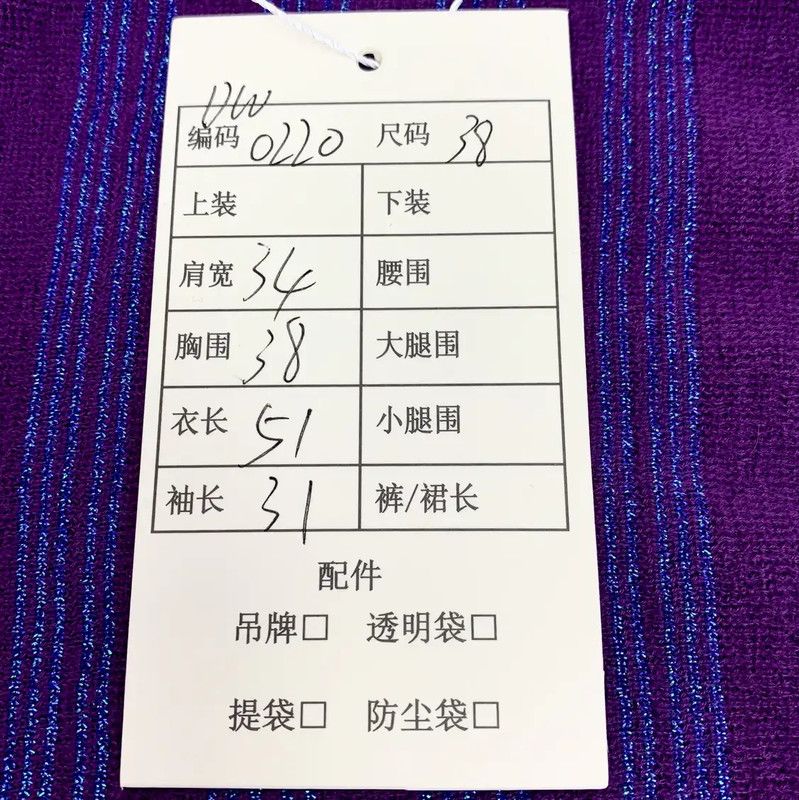 DW
编码 0220 尺码 38
上装 下装
肩宽 34 腰围
胸围 38 大腿围
衣长 51 小腿围
袖长 31 裤/裙长
配件
吊牌□ 透明袋□
提袋□ 防尘袋□